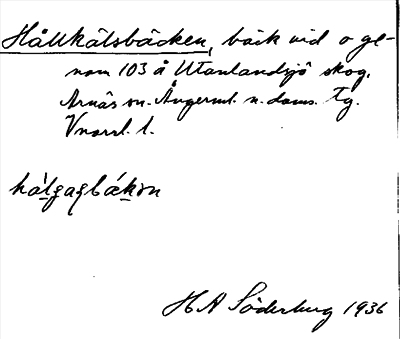 Hållkälsbäcken, bäck vid o ge-
nom 103 å Utanlandsjö skog.
Arnäs sn. Ångerml. n. doms. Tg.
Vnorrl. l.
H A Söderburg 1936